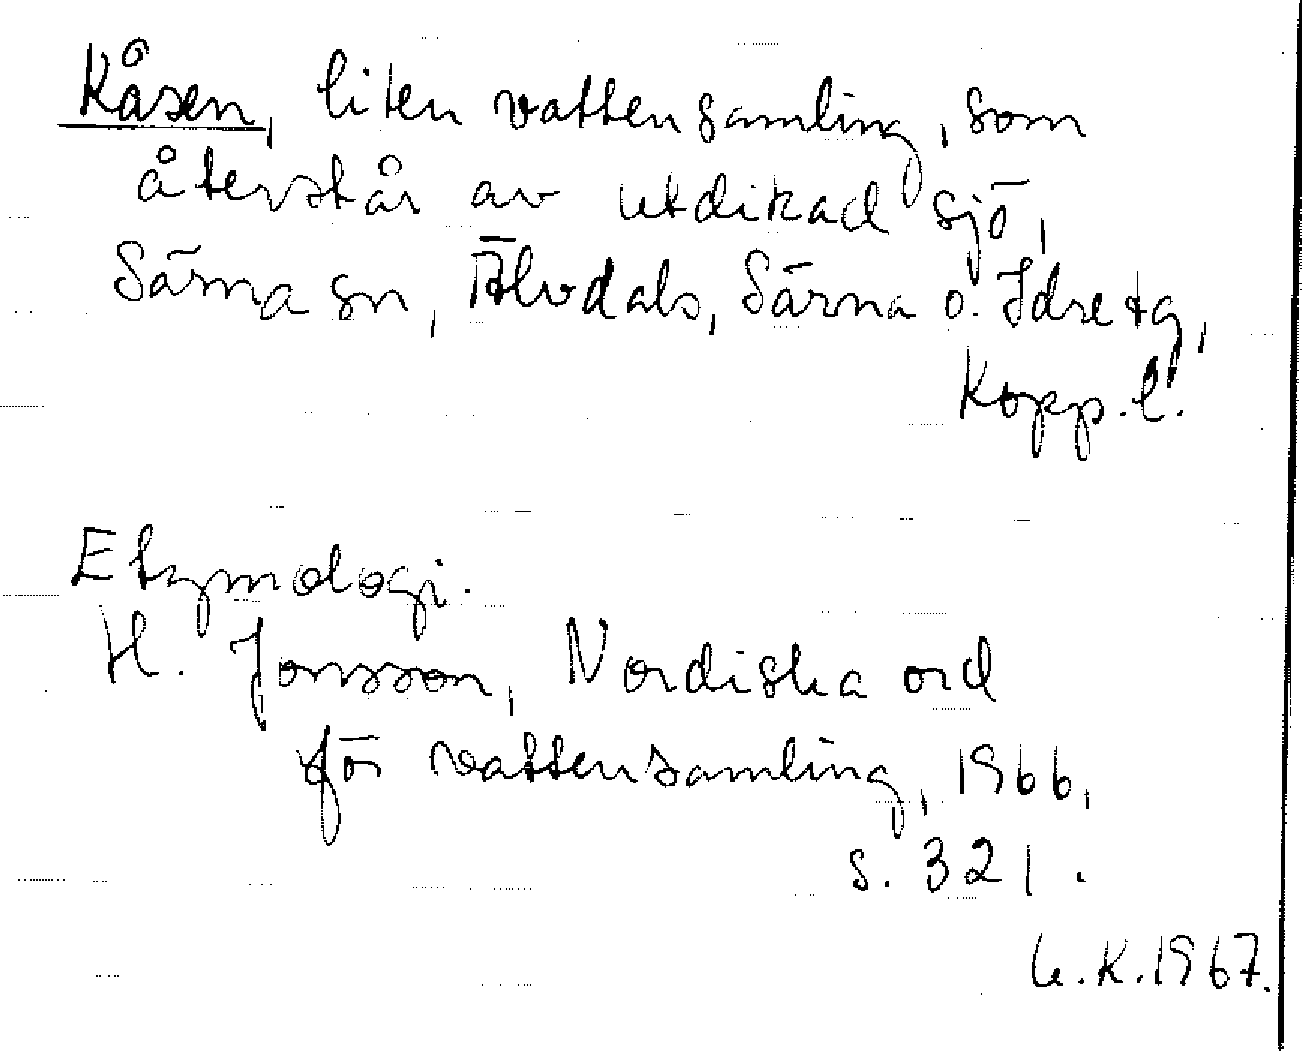 Kåsen, liten vattensamling, som
återstår av utdikad sjö,
Särna sn, Älvdals, Särna o. Idre tg,
Kopp. l.
Etymologi.
H. Jonsson, Nordiska ord
för vattensamling, 1966,
s. 321.
U.K. 1967.